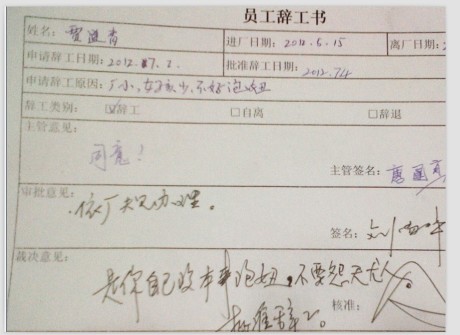 员工辞工书
姓名: 进厂日期: 2012.5.15 离厂日期:
申请辞工日期: 2012.7.2. 批准辞工日期: 2012.7/4
申请辞工原因: 厂小,女孩少,不好泡妞
辞工类别: ☑辞工 □自离 □辞退
主管意见:
同意!
主管签名:
审批意见:
依厂规办理。
签名:
裁决意见:
是你自己没本事泡妞,不要怨天尤人。
核准:
批准辞工。